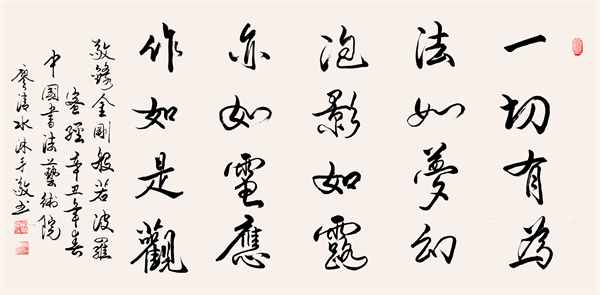 一切有為
法如夢幻
泡影如露
亦如電應
作如是觀
敬錄金剛般若波羅
蜜經辛丑年春
中國書法藝術院
廖清水沐手敬书